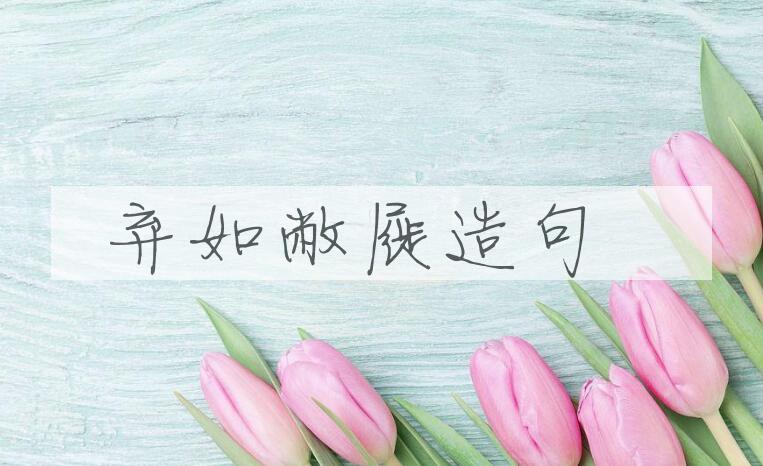 弃如敝屣造句